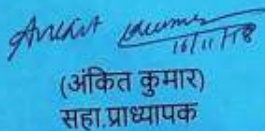 Ankit Kumar
16/11/18
(अंकित कुमार)
सहा.प्राध्यापक